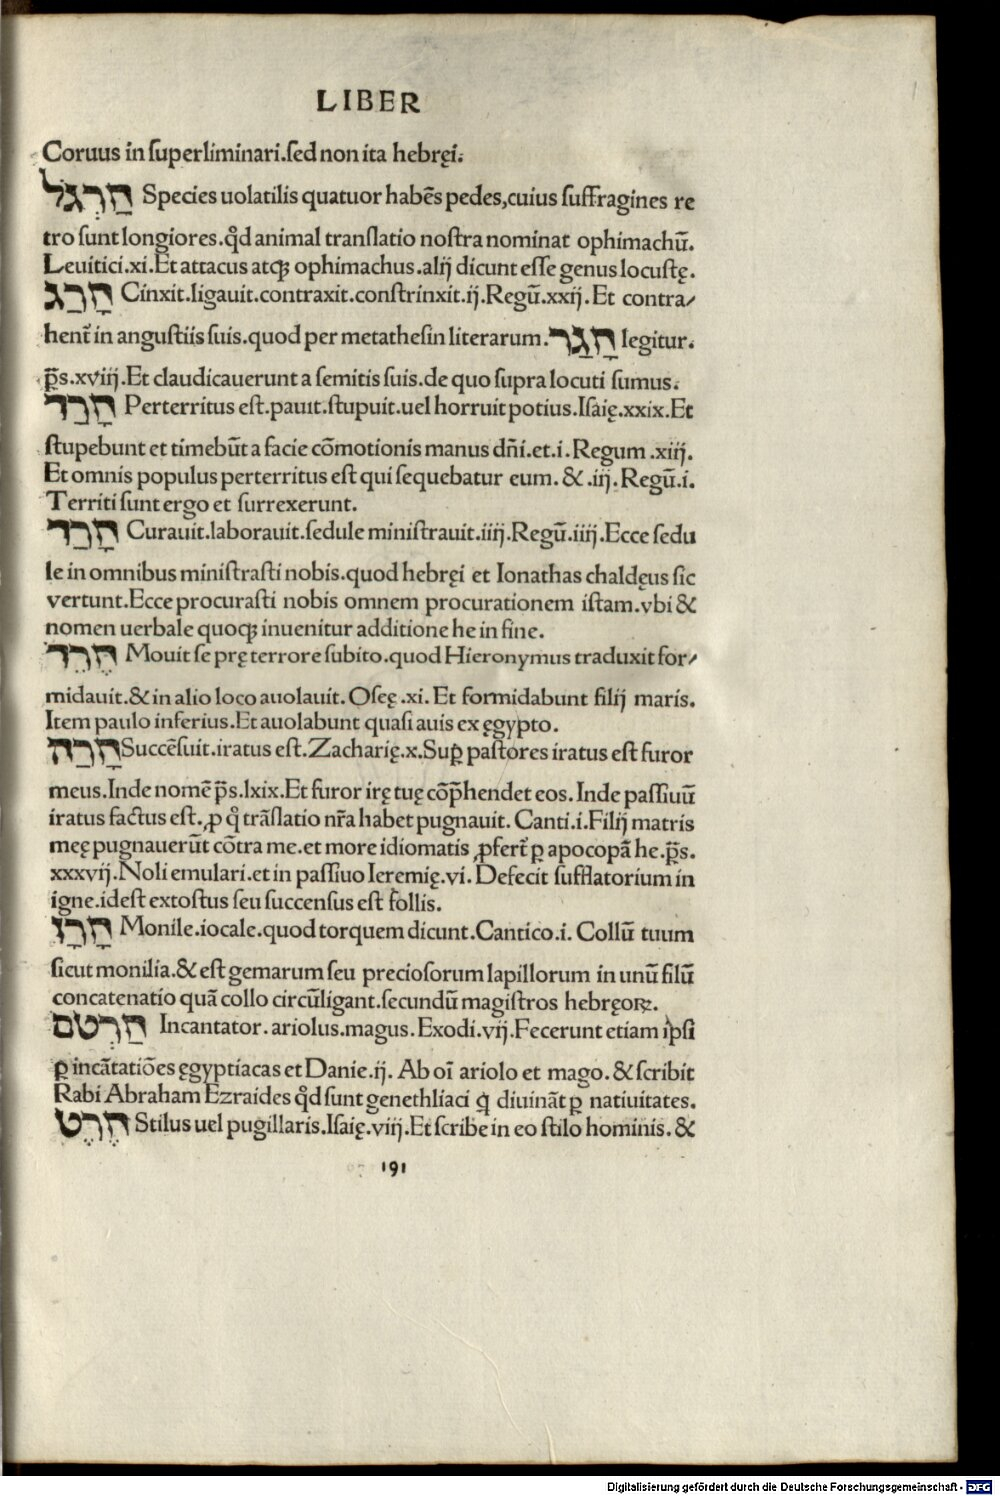 LIBER
Coruus in superliminari.sed non ita hebręi.
חַרְגֹּל Species uolatilis quatuor habēs pedes,cuius suffragines re
tro sunt longiores.qđ animal translatio nostra nominat ophimachū.
Leuitici.xi.Et attacus atqꝫ ophimachus.alij dicunt esse genus locustę.
חָרַג Cinxit.ligauit.contraxit.constrinxit.ij.Regū.xxij.Et contra/
hent̃ in angustiis suis.quod per metathesin literarum.חָגַר legitur.
p̄s.xviij.Et claudicauerunt a semitis suis.de quo supra locuti sumus.
חָרַד Perterritus est.pauit.stupuit.uel horruit potius.Isaię.xxix.Et
stupebunt et timebūt a facie cōmotionis manus dn̄i.et.i.Regum.xiij.
Et omnis populus perterritus est qui sequebatur eum.&.iij.Regū.i.
Territi sunt ergo et surrexerunt.
חָרַד Curauit.laborauit.sedule ministrauit.iiij.Regū.iiij.Ecce sedu
le in omnibus ministrasti nobis.quod hebręi et Ionathas chaldęus sic
vertunt.Ecce procurasti nobis omnem procurationem istam.vbi &
nomen uerbale quoqꝫ inuenitur additione he in fine.
חֶרֶד Mouit se pręterrore subito.quod Hieronymus traduxit for/
midauit.& in alio loco auolauit.Oseę.xi.Et formidabunt filij maris.
Item paulo inferius.Et auolabunt quasi auis ex ęgypto.
חָרַה Succēsuit.iratus est.Zacharię.x.Suꝑ pastores iratus est furor
meus.Inde nomē p̄s.lxix.Et furor irę tuę cōp̄hendet eos.Inde passiuū
iratus factus est.ꝓ q̄ trāslatio nr̄a habet pugnauit.Canti.i.Filij matris
meę pugnauerūt cōtra me.et more idiomatis ꝓfert̃ ꝑ apocopā he.p̄s.
xxxvij.Noli emulari.et in passiuo Ieremię.vi.Defecit sufflatorium in
igne.idest extostus seu succensus est follis.
חָרַז Monile.iocale.quod torquem dicunt.Cantico.i.Collū tuum
sicut monilia.& est gemarum seu preciosorum lapillorum in unū filū
concatenatio quā collo circūligant.secundū magistros hebręoꝝ.
חַרְטֹם Incantator.ariolus.magus.Exodi.vij.Fecerunt etiam ipsi
ꝑ incātatiōes ęgyptiacas et Danie.ij.Ab oī ariolo et mago.& scribit
Rabi Abraham Ezraides qđ sunt genethliaci q̄ diuināt ꝑ natiuitates.
חֶרֶט Stilus uel pugillaris.Isaię.viij.Et scribe in eo stilo hominis.&
191
Digitalisierung gefördert durch die Deutsche Forschungsgemeinschaft - DFG